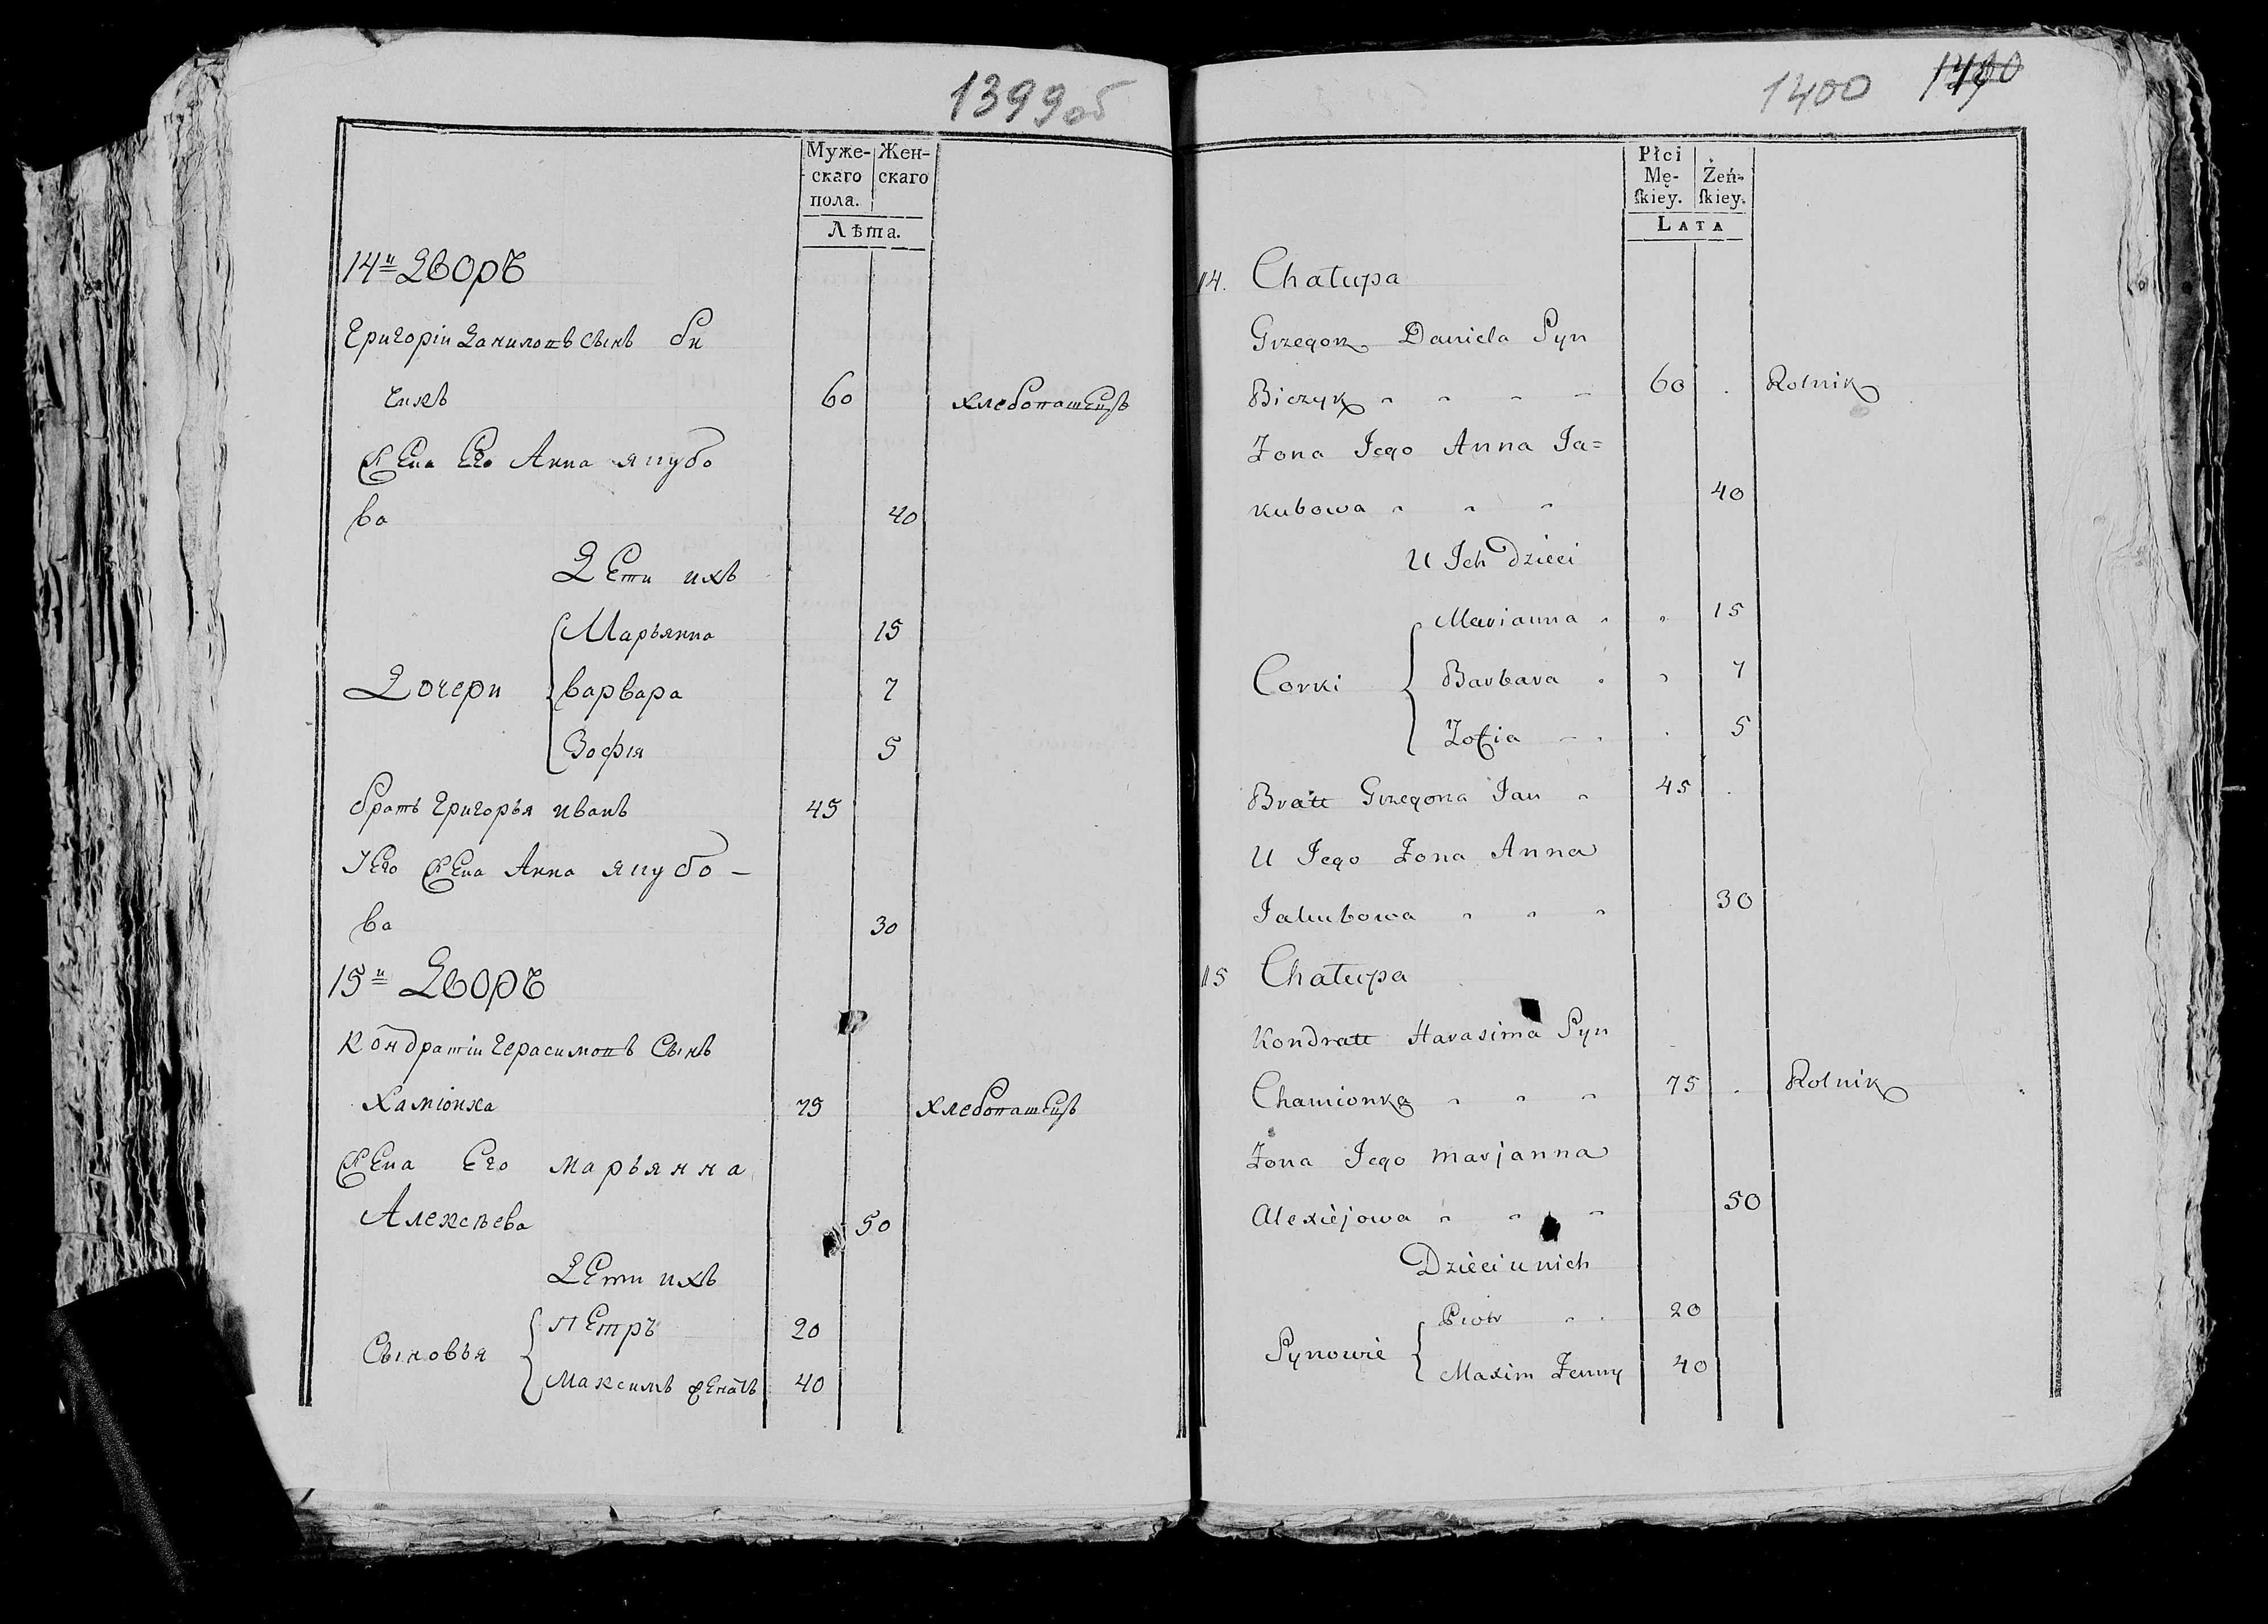 1399об
Муже- Жен-
скаго скаго
пола.
Лѣта.
14й Дворъ
Григоріи Даниловъ сынъ би
чикъ 60 хлебопашецъ
Жена Его Анна якубо
ва 40
Дети ихъ
Марьянна 15
Дочери варвара 7
Зофія 5
братъ Григорья иванъ 45
Его Жена Анна якубо –
ва 30
15й Дворъ
Кондратіи Герасимовъ Сынъ
Хаміонка 75 хлебопашецъ
Жена Его марьянна
Алексѣева 50
Дети ихъ
Петръ 20
Сыновья
Максимъ женатъ 40
1400 1400
Płci
Mę- Żeń-
ſkiey. ſkiey.
LATA
14. Chałupa
Grzegorz Daniela Syn
Biczyk 60 Rolnik
Żona Jego Anna Ja=
kubowa 40
U Ich Dzieci
Marianna 15
Corki Barbara 7
Zofia 5
Bratt Grzegorza Jan 45
U Jego Żona Anna
Jakubowa 30
15 Chałupa
Kondratt Harasima Syn
Chamionka 75 Rolnik
Żona Jego marjanna
Alexiejowa 50
Dzieci u nich
Piotr 20
Synowie
Maxim Żenny 40